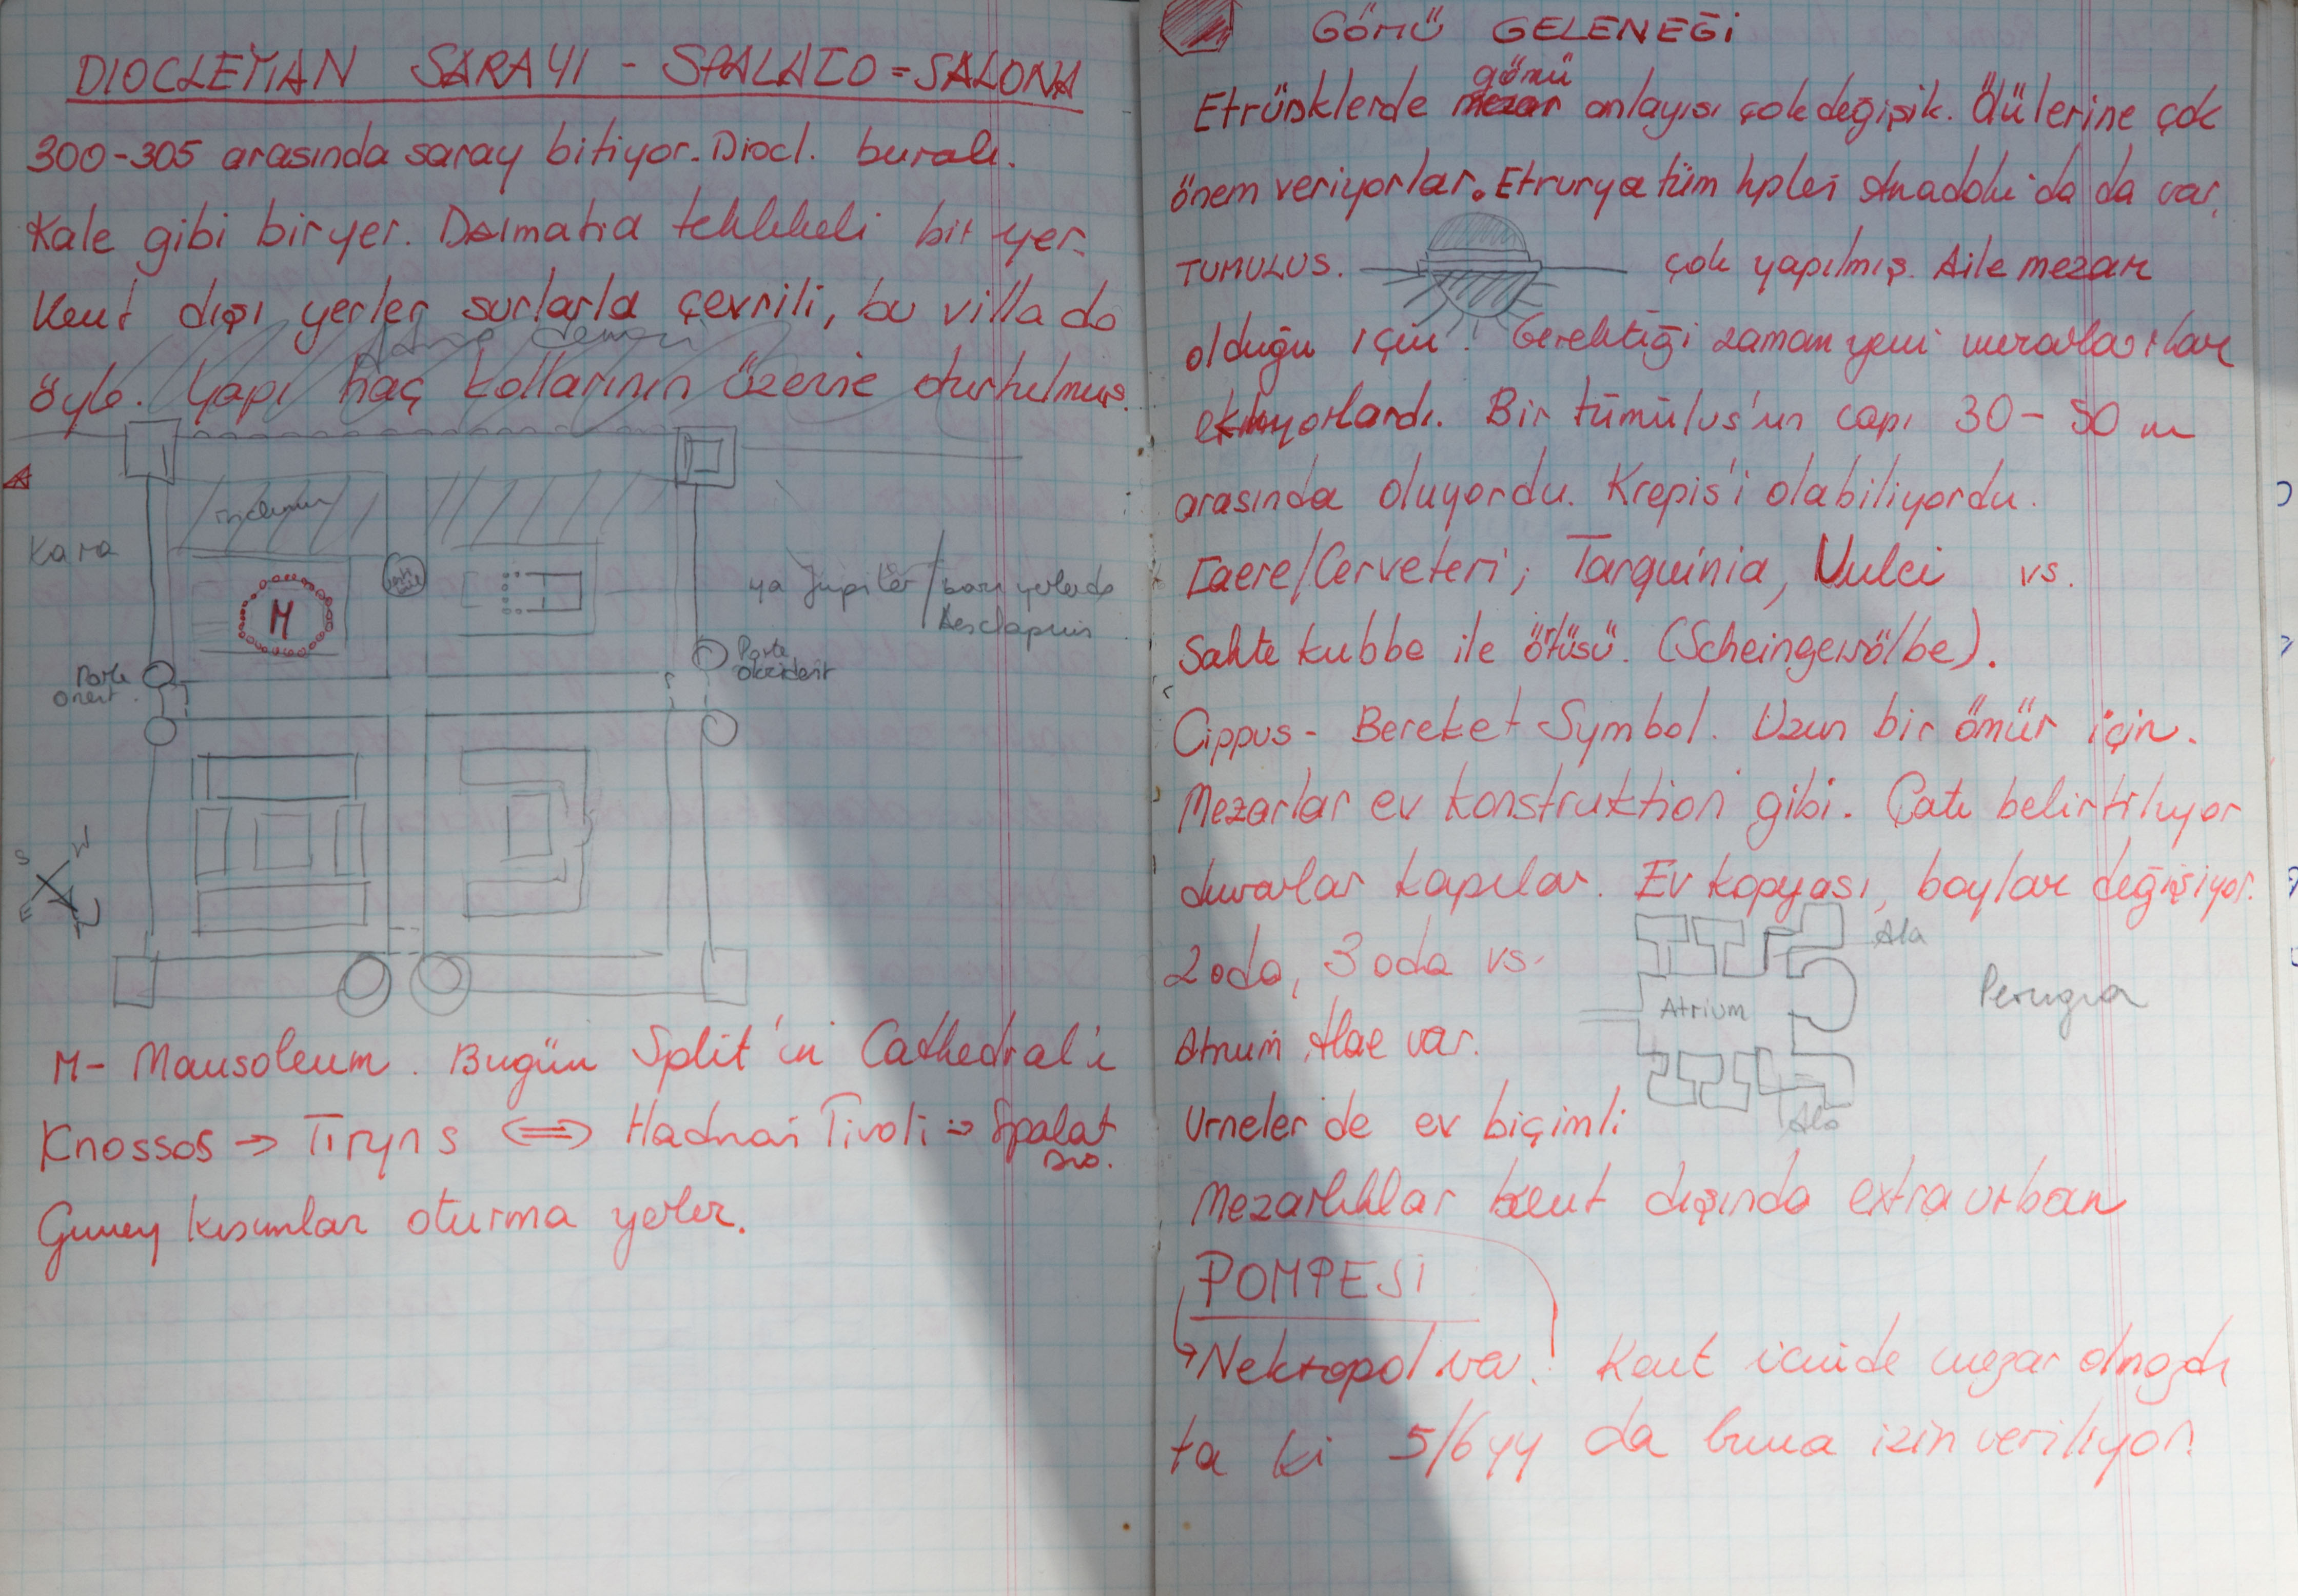 DIOCLETIAN SARAYI - SPALATO = SALONA
300-305 arasında saray bitiyor. Diocl. buralı.
Kale gibi bir yer. Dalmatia tehlikeli bir yer.
Kent dışı yerler surlarla çevrili, bu villa da
öyle. Yapı haç kollarının üzerine oturtulmuş.
Adria denizi
Kara
M
ya Jupiter / bazı yerlerde
Aesclapius
Porte
orient.
Porte
occident
S W
E N
M- Mausoleum. Bugün Split'in Cathedral'i
Knossos → Tiryns ⟺ Hadrian Tivoli => Spalat
Güney kısımlar oturma yerler.
GÖMÜ GELENEĞİ
gömü
Etrüsklerde mezar anlayışı çok değişik. Ölülerine çok
önem veriyorlar. Etrurya tüm tipleri Anadolu'da da var.
TUMULUS. çok yapılmış. Aile mezarı
olduğu için. Gerektiği zaman yeni mezarlar
ekliyorlardı. Bir tümülüs'ün çapı 30 - 50 m
arasında oluyordu. Krepis'i olabiliyordu.
Caere/Cerveteri; Tarquinia, Vulci vs.
Sahte kubbe ile örtüsü. (Scheingewölbe).
Cippus - Bereket Symbol. Uzun bir ömür için.
Mezarlar ev konstruktion gibi. Çatı belirtiliyor
duvarlar kapılar. Ev kopyası, boylar değişiyor.
2 oda, 3 oda vs.
Ala
Atrium
Perugia
Atrium, Alae var.
Ala
Urneler de ev biçimli
Mezarlıklar kent dışında extra urban
POMPESİ
→ Nekropol var! Kent içinde mezar olmazdı
ta ki 5/6 yy da buna izin veriliyor.